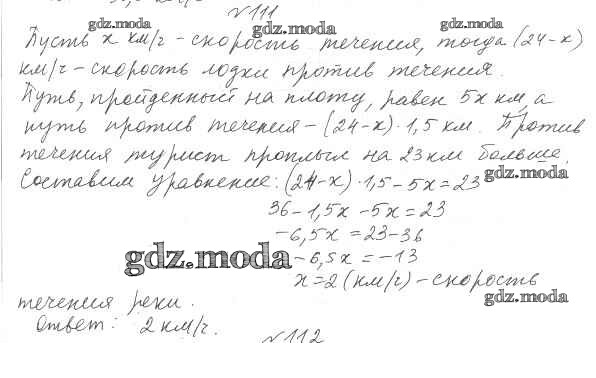 №111
Пусть x км/г - скорость течения, тогда (24-x)
км/г - скорость лодки против течения.
Путь, пройденный на плоту, равен 5x км, а
путь против течения - (24-x)·1,5 км. Против
течения турист проплыл на 23 км больше.
Составим уравнение: (24-x)·1,5-5x=23
36-1,5x-5x=23
-6,5x=23-36
-6,5x=-13
x=2 (км/г) - скорость
течения реки.
Ответ: 2 км/г.
№112
gdz.moda
gdz.moda
gdz.moda
gdz.moda
gdz.moda
gdz.moda